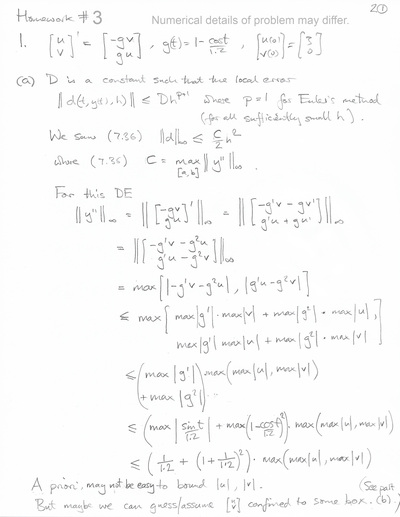 Homework #3 Numerical details of problem may differ. 2①
1. [u v]' = [-gv gu], g(t) = 1 - cost/1.2, [u(0) v(0)] = [3 0]
(a) D is a constant such that the local error
‖d(t, y(t), h)‖ ≤ Dh^{p+1} where p = 1 for Euler's method
(for all sufficiently small h).
We saw (7.36) ‖d‖∞ ≤ C/2 h²
where (7.36) C = max [a,b] ‖y''‖∞.
For this DE
‖y''‖∞ = ‖[-gv gu]'‖∞ = ‖[-g'v - gv' g'u + gu']‖∞
= ‖[-g'v - g²u g'u - g²v]‖∞
= max[|-g'v - g²u|, |g'u - g²v|]
≤ max[max|g'| · max|v| + max|g²| · max|u|,
max|g'| max|u| + max|g²| · max|v|]
≤ (max|g'| + max|g²|) · max(max|u|, max|v|)
≤ (max|sint/1.2| + max(1 - cost/1.2)²) · max(max|u|, max|v|)
≤ (1/1.2 + (1 + 1/1.2)²) · max(max|u|, max|v|)
A priori, may not be easy to bound |u|, |v|. (See part
But maybe we can guess/assume [u v] confined to some box. (b).)